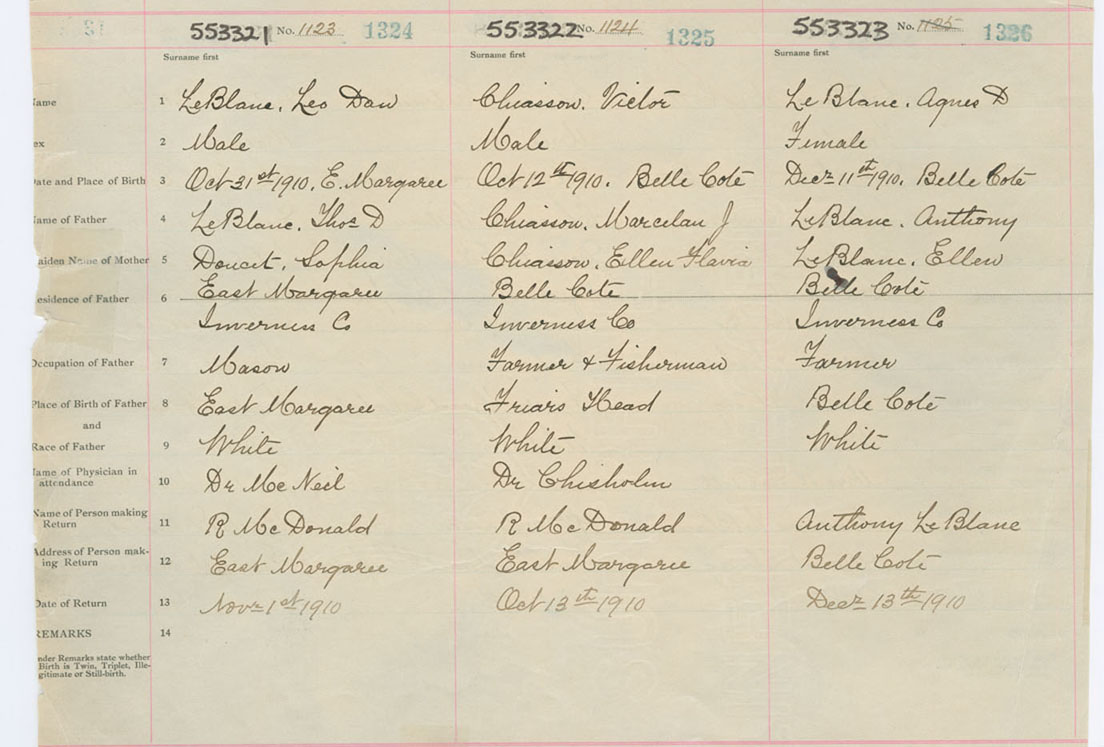 553321 No. 1123 1324 553322 No. 1124 1325 553323 No. 1125 1326
Surname first Surname first Surname first
Name 1 LeBlanc, Leo Dan Chiasson, Victor LeBlanc, Agnes D
Sex 2 Male Male Female
Date and Place of Birth 3 Oct 31st 1910, E. Margaree Oct 12th 1910. Belle Cote Decr 11th 1910, Belle Cote
Name of Father 4 LeBlanc, Thos D Chiasson, Marcelan J LeBlanc, Anthony
Maiden Name of Mother 5 Doucet, Sophia Chiasson, Ellen Flavia LeBlanc, Ellen
Residence of Father 6 East Margaree Belle Cote Belle Cote
Inverness Co Inverness Co Inverness Co
Occupation of Father 7 Mason Farmer & Fisherman Farmer
Place of Birth of Father 8 East Margaree Friars Head Belle Cote
and
Race of Father 9 White White White
Name of Physician in
attendance 10 Dr McNeil Dr Chisholm
Name of Person making
Return 11 R McDonald R McDonald Anthony LeBlanc
Address of Person mak-
ing Return 12 East Margaree East Margaree Belle Cote
Date of Return 13 Novr 1st 1910 Oct 13th 1910 Decr 13th 1910
REMARKS 14
Under Remarks state whether
Birth is Twin, Triplet, Ille-
gitimate or Still-birth.